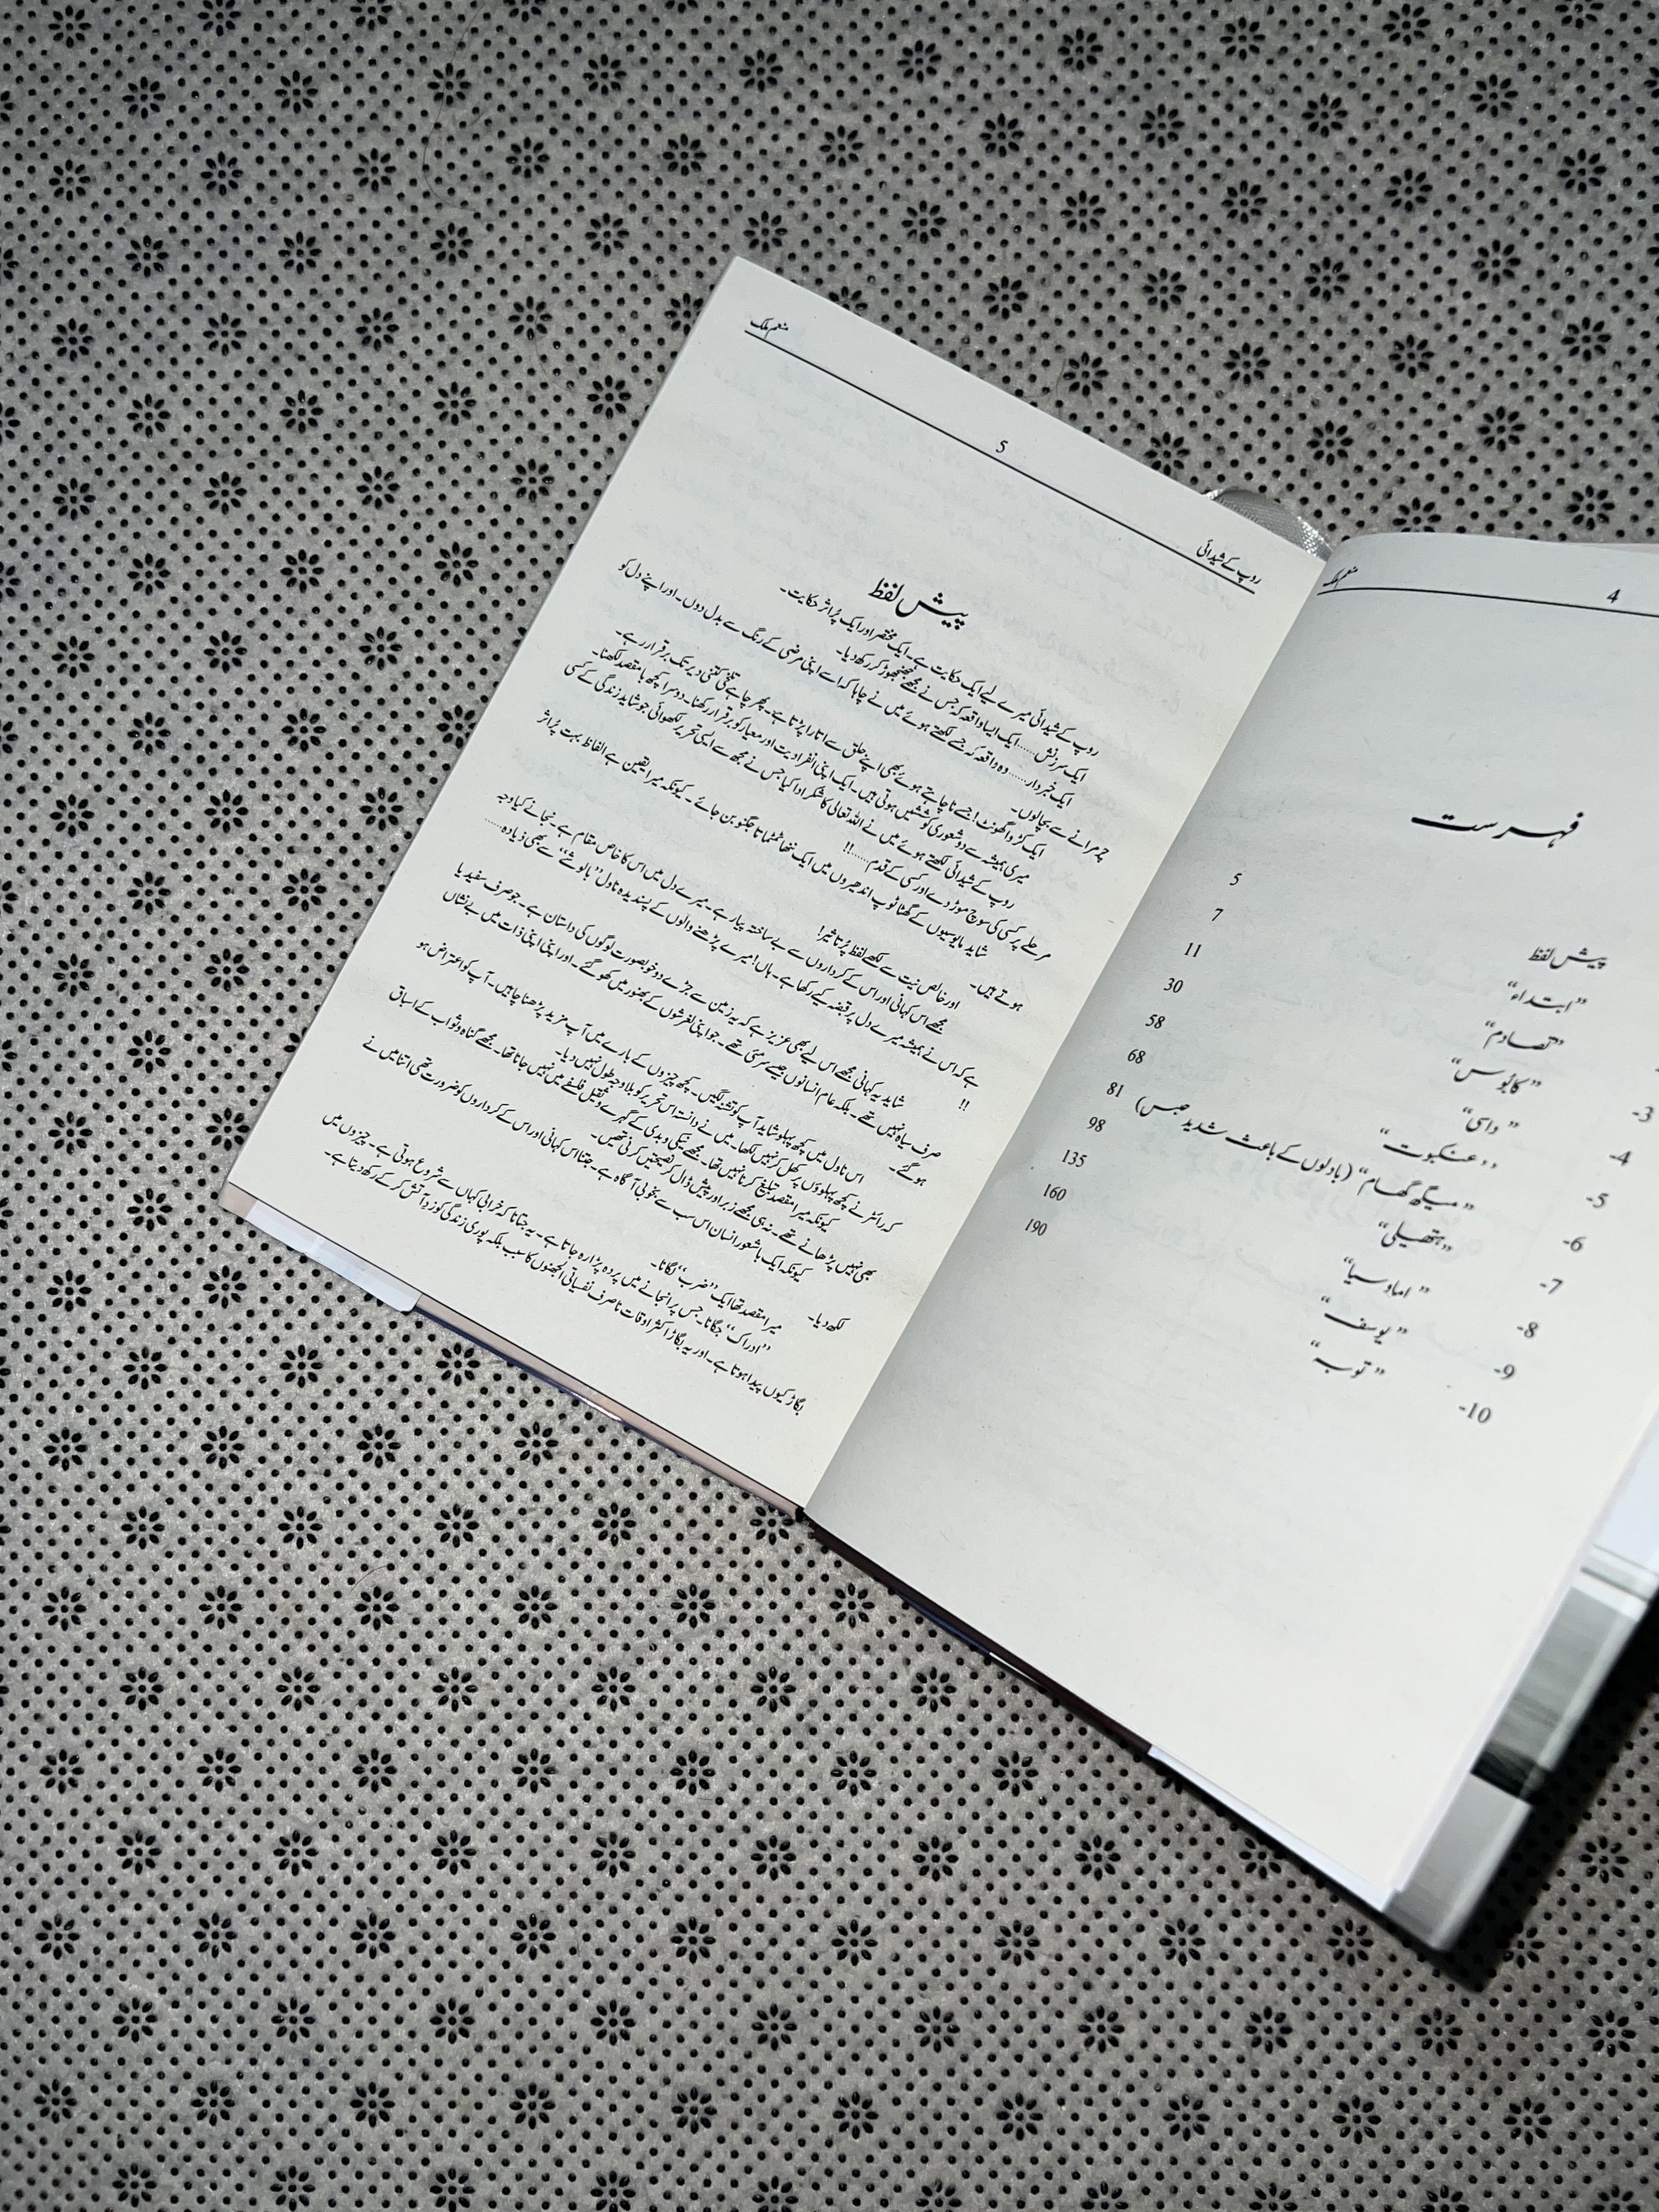 4
منعم ملک
فہرست
پیش لفظ 5
"ابتداء" 7
"تصادم" 11
3- "کابوس" 30
4- "داسی" 58
5- "عنکبوت" 68
6- "میگھ گھام" (بادلوں کے باعث شدید حبس) 81
7- "ہتھیلی" 98
8- "اماوسیا" 135
9- "یوسف" 160
10- "توبہ" 190
روپ کے شیدائی
5
منعم ملک
پیش لفظ
روپ کے شیدائی میرے لیے ایک حکایت ہے۔ ایک مختصر اور ایک پُراثر حکایت۔
ایک سرزنش..... ایک ایسا واقعہ کہ جس نے مجھے جھنجھوڑ کر رکھ دیا۔
ایک خبردار...... وہ واقعہ کہ جسے لکھتے ہوئے میں نے چاہا کہ اسے اپنی مرضی کے رنگ سے بدل دوں۔ اور اپنے دل کو
چرمرانے سے بچالوں۔
ایک کڑوا گھونٹ! جسے نا چاہتے ہوئے بھی اپنے حلق سے اتارا پڑتا ہے۔ پھر چاہے تلخی کتنی دیر تک برقرار رہے۔
میری ہمیشہ سے دو شعوری کوششیں ہوتی ہیں۔ ایک اپنی انفرادیت اور معیار کو برقرار رکھنا۔ دوسرا کچھ بامقصد لکھنا۔
روپ کے شیدائی لکھتے ہوئے میں نے اللہ تعالی کا شکر ادا کیا جس نے مجھ سے ایسی تحریر لکھوائی جو شاید زندگی کے کسی
مرحلے پر کسی کی سوچ موڑ دے اور کسی کے قدم.....!!
شاید مایوسیوں کے گھٹا ٹوپ اندھیروں میں ایک ننھا ٹمٹماتا جگنو بن جائے۔ کیونکہ میرا یقین ہے الفاظ بہت پُراثر
ہوتے ہیں۔
اور خالص نیت سے لکھے لفظ پُرتاثیر!
مجھے اس کہانی اور اس کے کرداروں سے بے ساختہ پیار ہے۔ میرے دل میں اس کا خاص مقام ہے۔ نجانے کیا وجہ
ہے کہ اس نے ہمیشہ میرے دل پر قبضہ کیے رکھا ہے۔ ہاں! میرے پڑھنے والوں کے پسندیدہ ناول "بالوشے" سے بھی زیادہ.....
!!
شاید یہ کہانی مجھے اس لیے بھی عزیز ہے کہ یہ زمین سے جڑے دو خوبصورت لوگوں کی داستان ہے۔ جو صرف سفید یا
صرف سیاہ نہیں تھے۔ بلکہ عام انسانوں جیسے سرمئی تھے۔ جو اپنی لغزشوں کے بھنور میں کھو گئے۔ اور اپنی اپنی ذات میں بے نشاں
ہو گئے۔
اس ناول میں کچھ پہلو شاید آپ کو تشنہ لگیں۔ کچھ چیزوں کے بارے میں آپ مزید پڑھنا چاہیں۔ آپ کو اعتراض ہو
کہ رائٹر نے کچھ پہلوؤں پر کھل کر نہیں لکھا۔ میں نے دانستہ اس تحریر کو بلاوجہ طول نہیں دیا۔
کیونکہ میرا مقصد تبلیغ کرنا نہیں تھا۔ مجھے نیکی و بدی کے گہرے و ثقیل فلسفے میں نہیں جانا تھا۔ مجھے گناہ و ثواب کے اسباق
بھی نہیں پڑھانے تھے۔ نہ ہی مجھے زبر اور پیش ڈال کر نصیحتیں کرنی تھیں۔
کیونکہ ایک باشعور انسان اس سب سے بخوبی آگاہ ہے۔ جتنا اس کہانی اور اس کے کرداروں کو ضرورت تھی اتنا میں نے
لکھ دیا۔
میرا مقصد تھا ایک "ضرب" لگانا۔
"ادراک" جگانا۔ جس پر انجانے میں پردہ پڑا رہ جاتا ہے۔ یہ جتانا کہ خرابی کہاں سے شروع ہوتی ہے۔ چیزوں میں
بگاڑ کیوں پیدا ہوتا ہے۔ اور یہ بگاڑ اکثر اوقات نا صرف نفسیاتی الجھنوں کا سبب بلکہ پوری زندگی کو زد و آتش کر کے رکھ دیتا ہے۔